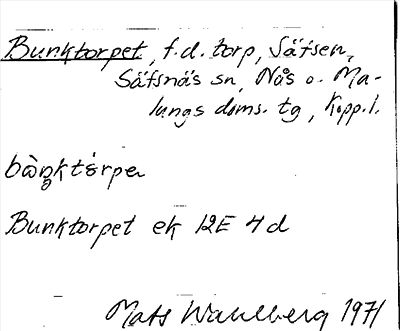 Bunktorpet, f.d. torp, Säfsen,
Säfsnäs sn, Nås o. Ma-
lungs doms. tg, Kopp. l.
Bunktorpet ek 12E 4d
Mats Wahlberg 1971